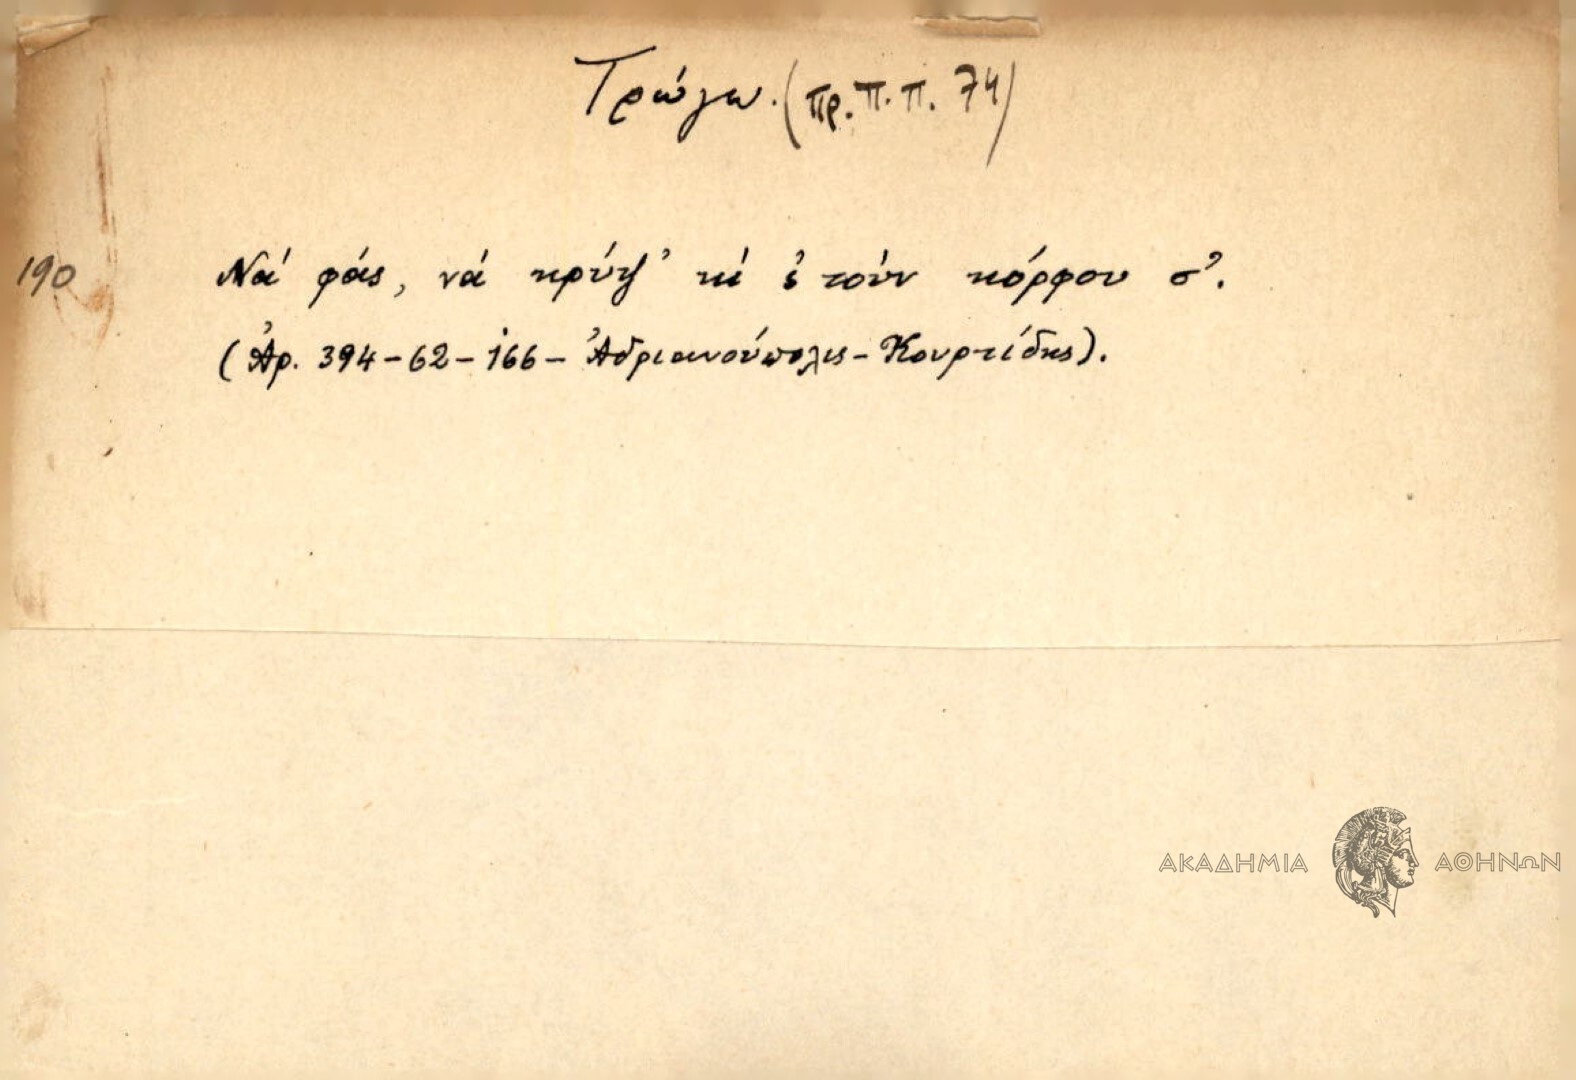 Τρώγω. (πρ. π. π. 74)
190 Νά φάς, νά κρύψ' κί 's τούν κόρφου σ'.
(Ἀρ. 394-62-166- Ἀδριανούπολις - Κουρτίδης).
ΑΚΑΔΗΜΙΑ ΑΘΗΝΩΝ